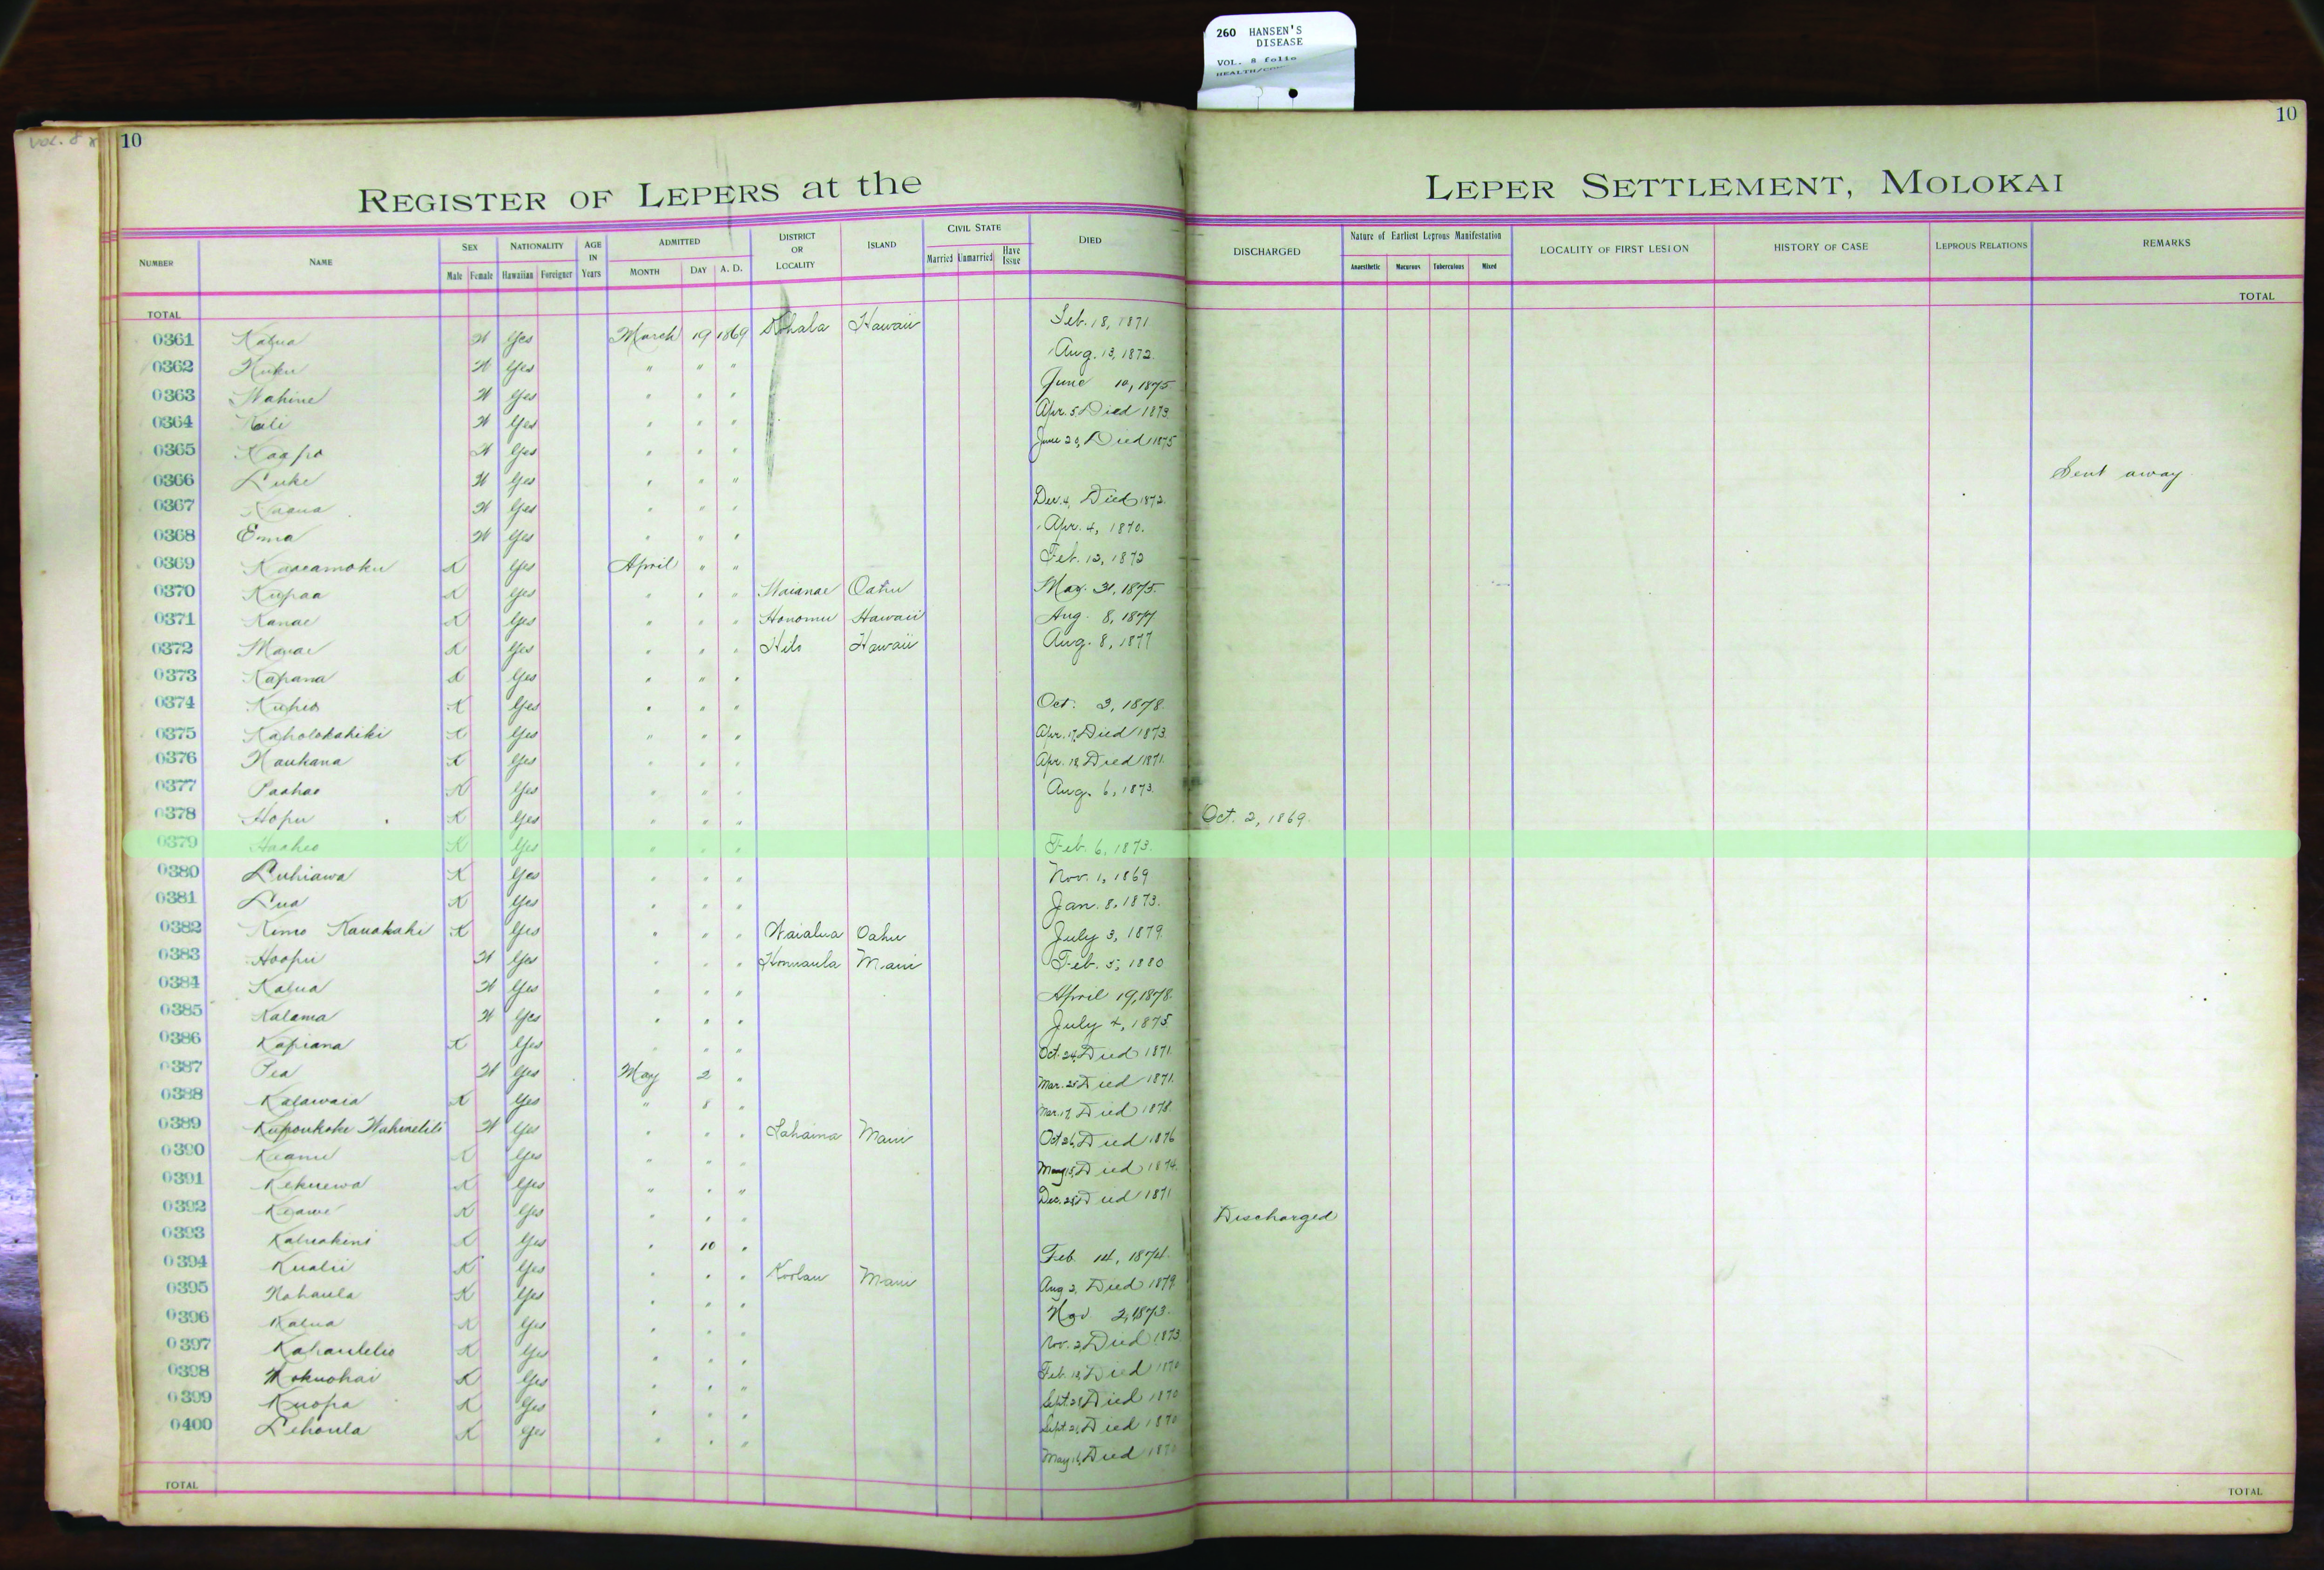 260 HANSEN'S
DISEASE
VOL. 8 folio
VOL. 8
10
10
REGISTER OF LEPERS at the LEPER SETTLEMENT, MOLOKAI
NUMBER NAME SEX NATIONALITY AGE IN Years ADMITTED DISTRICT OR LOCALITY ISLAND CIVIL STATE DIED DISCHARGED Nature of Earliest Leprous Manifestation LOCALITY OF FIRST LESION HISTORY OF CASE LEPROUS RELATIONS REMARKS
Male Female Hawaiian Foreigner MONTH DAY A. D. Married Unmarried Have Issue Anaesthetic Macurous Tuberculous Mixed
TOTAL TOTAL
0361 Kalua W Yes March 19 1869 Kohala Hawaii Feb. 18, 1871
0362 Kuku W Yes " " " Aug. 13, 1872.
0363 Wahine W Yes " " " June 10, 1875
0364 Kali W Yes " " " Apr. 5 Died 1873.
0365 Kaapo W Yes " " " June 29, Died 1875
0366 Luke W Yes " " " Sent away
0367 W Yes " " " Dec. 4, Died 1872.
0368 Emma W Yes " " " Apr. 4, 1870.
0369 Kaaeamoku K Yes April " " Feb. 12, 1872
0370 Kupaa K Yes " " " Waianae Oahu May. 31, 1875.
0371 Kanae K Yes " " " Honomu Hawaii Aug. 8, 1877
0372 Manae K Yes " " " Hilo Hawaii Aug. 8, 1877
0373 Kapana K Yes " " "
0374 Kuheo K Yes " " " Oct. 3, 1878.
0375 Kaholokahiki K Yes " " " Apr. 17, Died 1873.
0376 Naukana K Yes " " " Apr. 18, Died 1871.
0377 Paahao K Yes " " " Aug. 6, 1873.
0378 Hopu K Yes " " " Oct. 2, 1869.
0379 Haaheo K Yes " " " Feb. 6, 1873.
0380 Luhiawa K Yes " " " Nov. 1, 1869
0381 Lua K Yes " " " Jan. 8, 1873.
0382 Kimo Kauakahi K Yes " " " Waialua Oahu July 3, 1879.
0383 Hoopii W Yes " " " Honuaula Maui Feb. 5, 1880
0384 Kalua W Yes " " " April 19, 1878.
0385 Kalama W Yes " " " July 4, 1875
0386 Kapiana K Yes " " " Oct. 24, Died 1871.
0387 Pea W Yes May 2 " Mar. 25 Died 1871.
0388 Kalawaia K Yes " 8 " Mar. 17, Died 1878.
0389 W Yes " " " Lahaina Maui Oct 26, Died 1876
0390 Keanu K Yes " " " May 15, Died 1874.
0391 Kekuewa K Yes " " " Dec. 28, Died 1871
0392 Keawe K Yes " " " Discharged
0393 K Yes " 10 " Feb. 14, 1874.
0394 Kualii K Yes " " " Koolau Maui Aug 2, Died 1879.
0395 Nahaula K Yes " " " Nov 2, 1873.
0396 Kalua K Yes " " " Nov. 2, Died 1873
0397 Kahaulelio K Yes " " " Feb. 18, Died 1870
0398 Mokuohai K Yes " " " Sept. 28 Died 1870
0399 Kuopa K Yes " " " Sept. 21, Died 1870
0400 Lehoula K Yes " " " May 16, Died 1870
TOTAL TOTAL